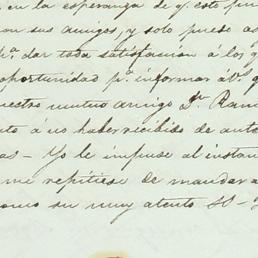 en la esperanza de q. este pu
on sus amigos, y solo puedo as
p.ª dar toda satisfacción á los q
oportunidad p.ª informar ab.s q
uestro mutuo amigo D.n Ram
to á no haber recibido de auto
as - Yo le impuse al instan
me repitiese de mandar a
omo su muy atento SS -